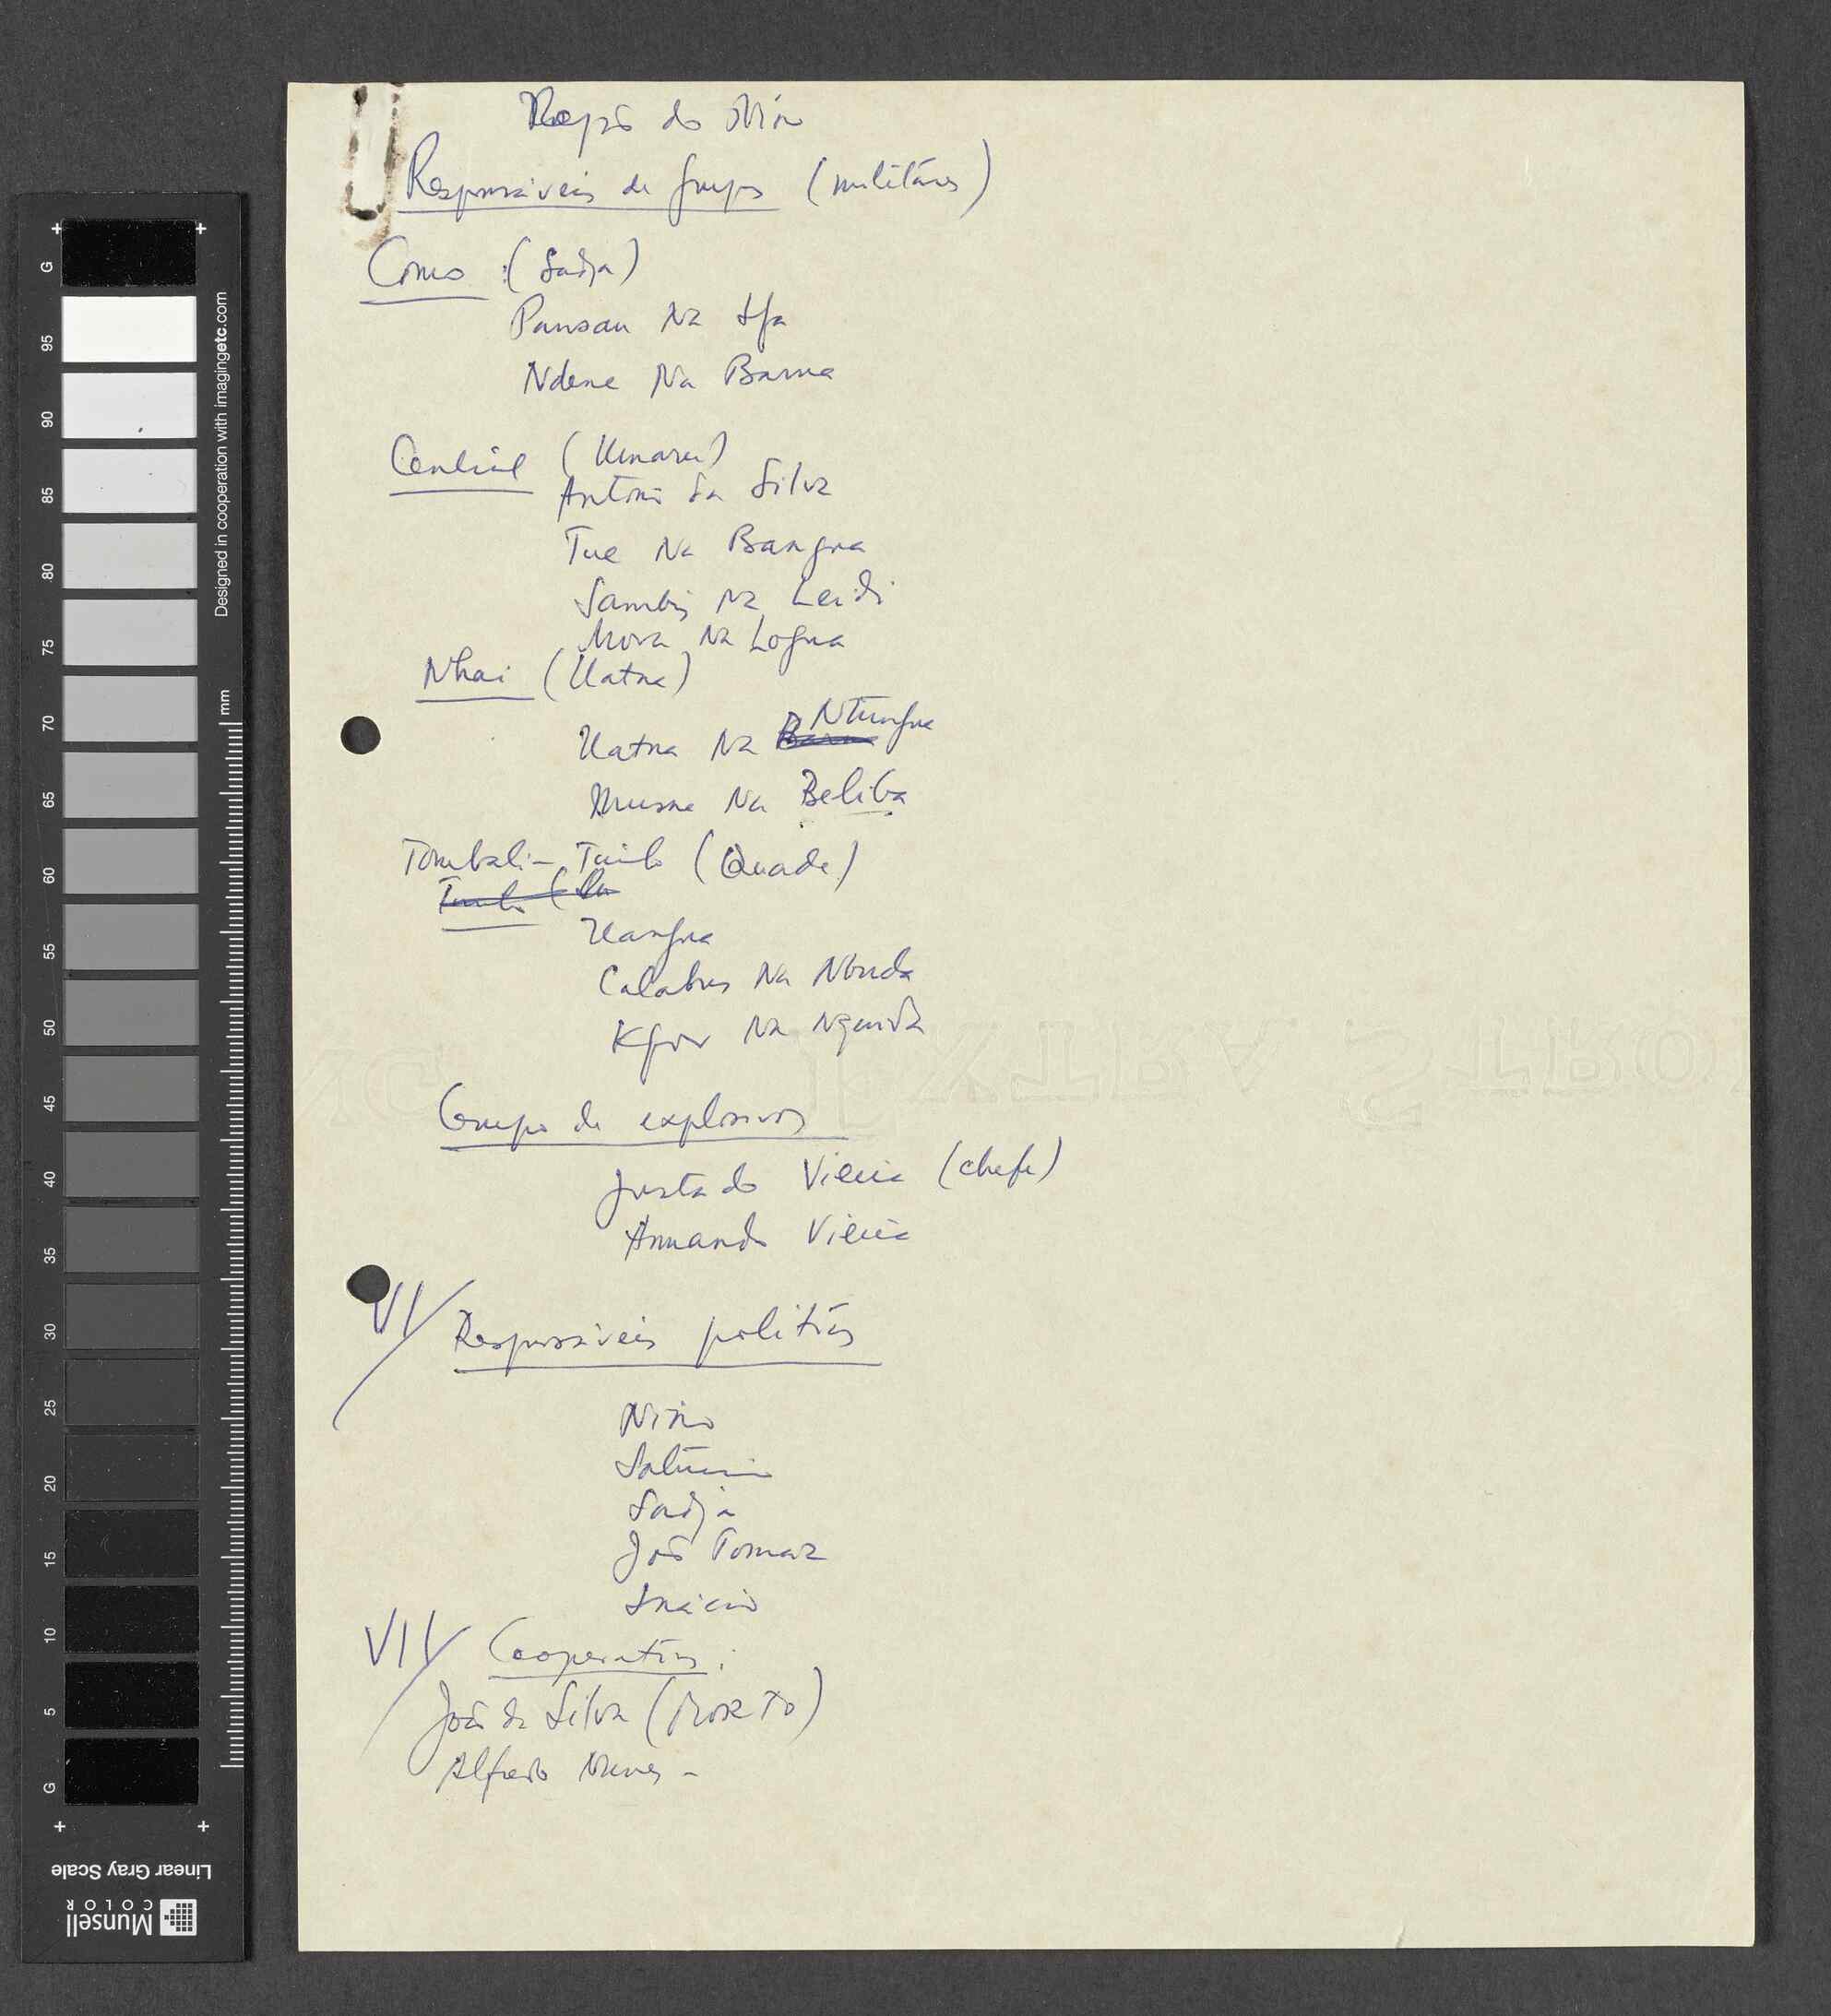 Região do Nino
Responsáveis de grupos (militares)
Como : (Sadja)
Pansau Na Isfa
Ndene Na Barna
Central (Umaru)
António da Silva
Tue Na Bangna
Na Leidi
Mova Na Logna
Nhai (Uatna)
Uatna Na Ntungna
Musna Na Beliba
Tombali - Timbo (Quade)
Uangna
Calabus Na Nbunda
Na
Grupo de explosivos
Justado Vieira (chefe)
Armando Vieira
VI/ Responsáveis políticos
Nino
Saturnino
Sadja
João Tomaz
Inácio
VII/ Cooperativas:
João da Silva (MORTO)
Alfredo Nunes -
Designed in cooperation with imagingetc.com
mm
G 95 90 85 80 75 70 65 60 55 50 45 40 35 30 25 20 15 10 5 G
Linear Gray Scale
Munsell
COLOR
EXTRA STRO